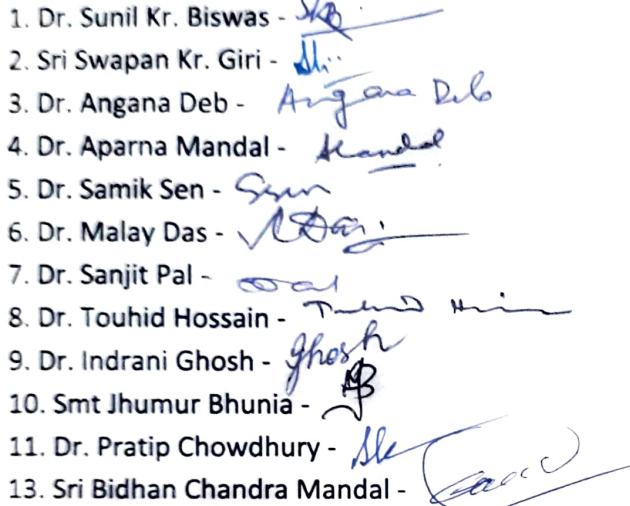 1. Dr. Sunil Kr. Biswas - SKB
2. Sri Swapan Kr. Giri -
3. Dr. Angana Deb - Angana Deb
4. Dr. Aparna Mandal - AMandal
5. Dr. Samik Sen - SSen
6. Dr. Malay Das - MDas
7. Dr. Sanjit Pal -
8. Dr. Touhid Hossain - Touhid Hossain
9. Dr. Indrani Ghosh - Ghosh
10. Smt Jhumur Bhunia - JB
11. Dr. Pratip Chowdhury -
13. Sri Bidhan Chandra Mandal -